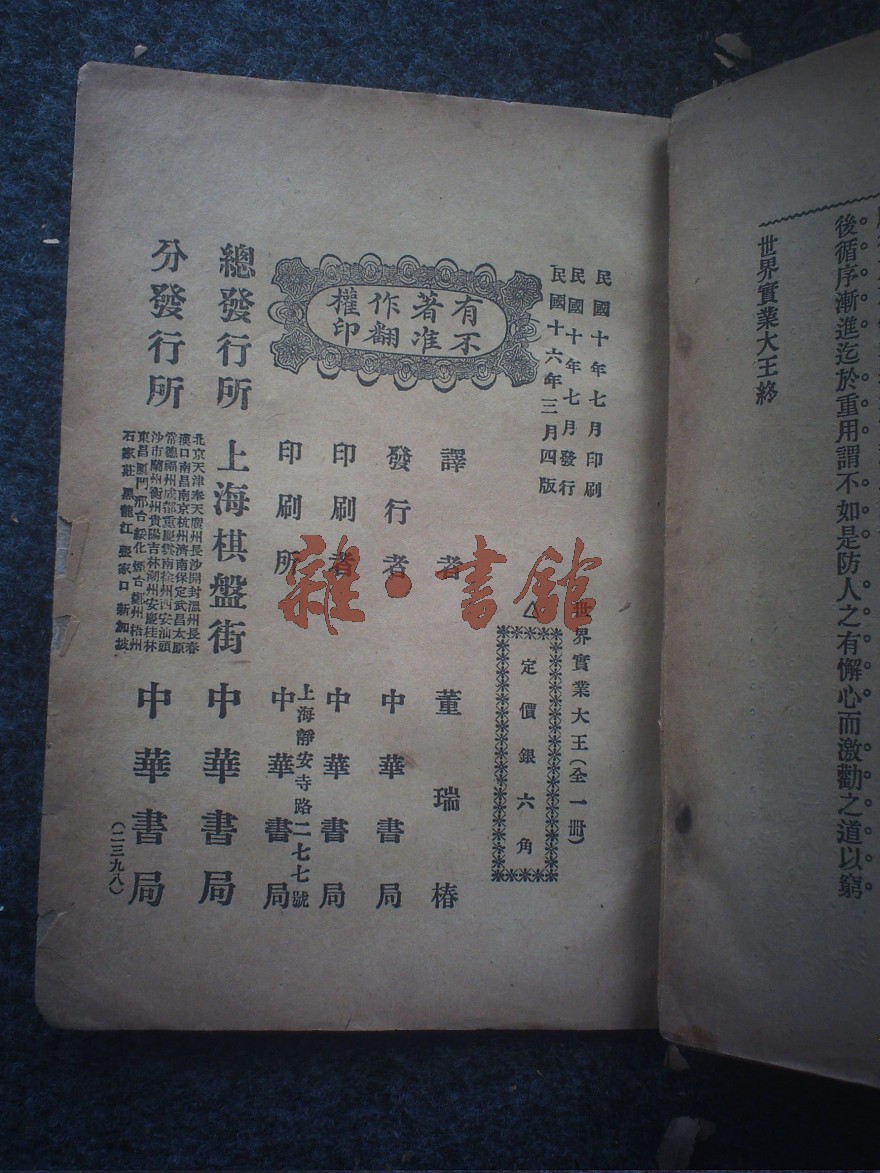 後循序漸進迄於重用謂不如是防人之有懈心而激勸之道以窮
世界實業大王終
民國十年七月印刷
民國十年七月發行
民國十六年三月四版
世界實業大王(全一冊)
定價銀六角
有著作權
不准翻印
譯者 董瑞椿
發行者 中華書局
印刷者 中華書局
上海靜安寺路二七七號
印刷所 中華書局
總發行所 上海棋盤街 中華書局
分發行所
北京天津奉天廣州長沙開封溫州長春
漢口南昌南京杭州濟南保定武昌太原
常德福州成都重慶雲南徐州西安汕頭
沙市蘭州衡州貴陽吉林潮州安慶桂林
東昌廈門邢台綏化烟台鄭州梧州
石家莊黑龍江張家口新加坡
中華書局
(二三九八)
雜·書館